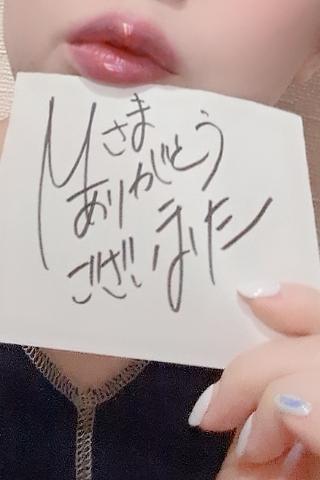 Mさま
ありがとう
ござい
ました